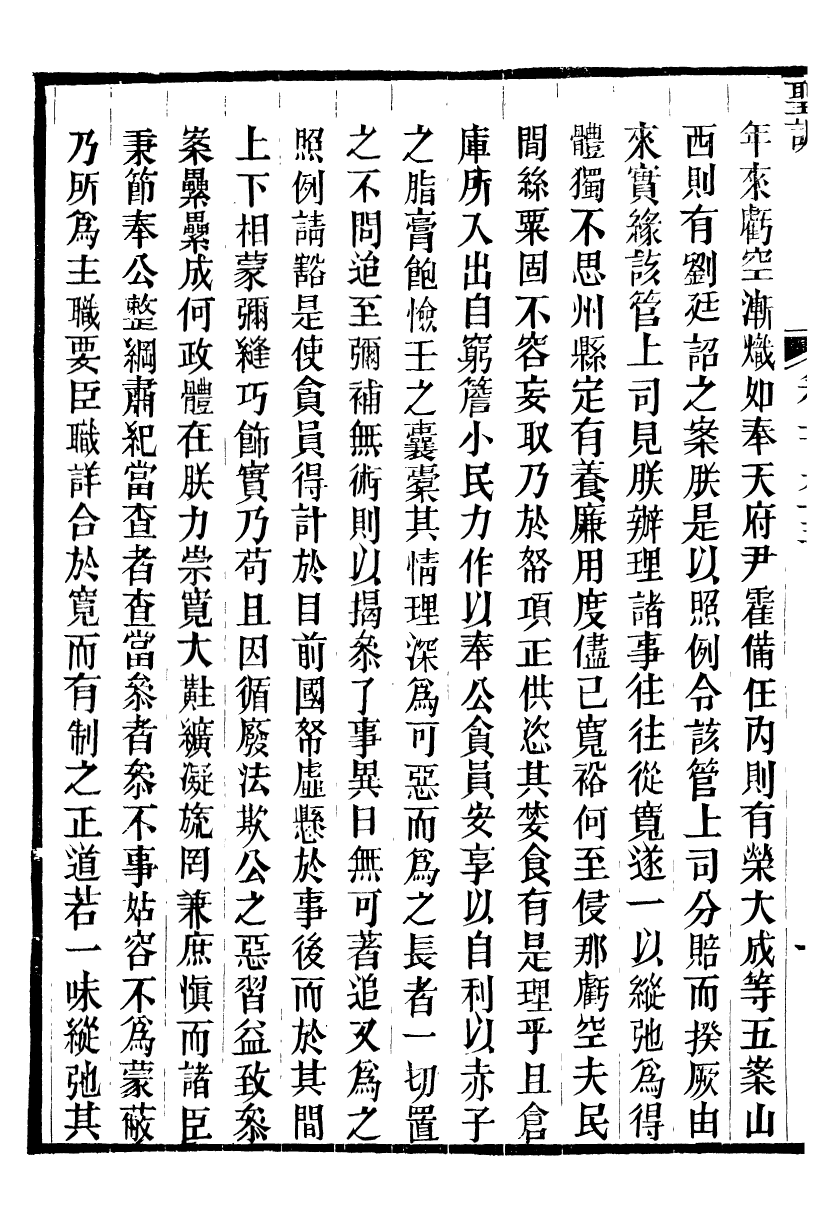 聖訓
年來虧空漸熾如奉天府尹霍備任內則有榮大成等五案山
西則有劉廷詔之案朕是以照例令該管上司分賠而揆厥由
來實緣該管上司見朕辦理諸事往往從寬遂一以縱弛為得
體獨不思州縣定有養廉用度儘已寬裕何至侵那虧空夫民
間絲粟固不容妄取乃於帑項正供恣其婪食有是理乎且倉
庫所入出自窮簷小民力作以奉公貪員安享以自利以赤子
之脂膏飽憸壬之囊橐其情理深為可惡而為之長者一切置
之不問迨至彌補無術則以揭叅了事異日無可著追又為之
照例請豁是使貪員得計於目前國帑虛懸於事後而於其間
上下相蒙彌縫巧飾實乃苟且因循廢法欺公之惡習益致叅
案纍纍成何政體在朕力崇寬大黈纊凝旒罔兼庶愼而諸臣
秉節奉公整綱肅紀當查者查當叅者叅不事姑容不為蒙蔽
乃所為主職要臣職詳合於寬而有制之正道若一味縱弛其